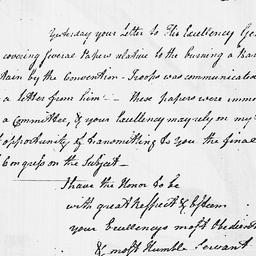 Yesterday your Letter to His Excellency Ge
covering Several Papers relative to the burning a Bar
tain by the Convention-Troops was communicated
a letter from him — These papers were imme
a Committee, & your Excellency may rely on my
opportunity of transmitting to you the final
Congress on the Subject —
I have the Honor to be
with great Respect & Esteem
your Excellencys most Obedient
& most Humble Servant